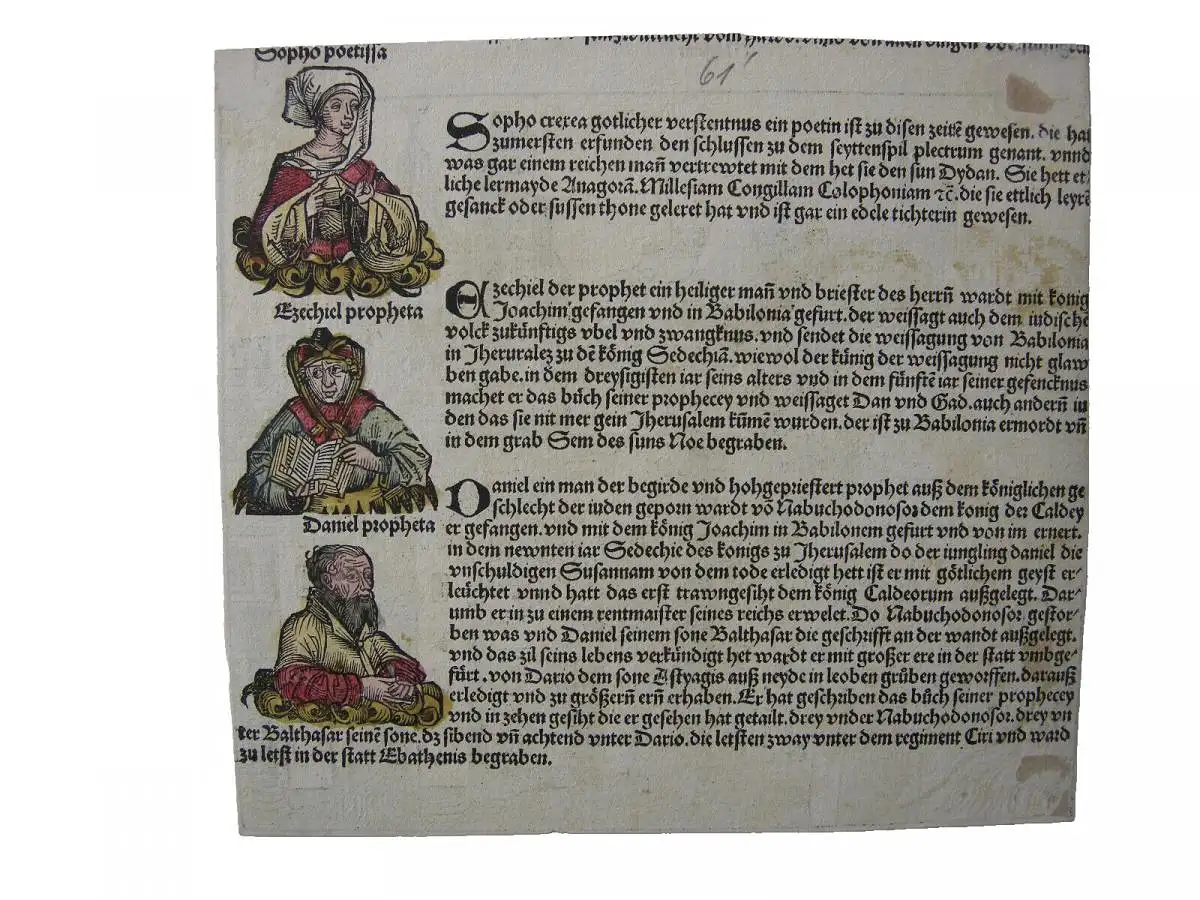 Sopho poetissa
61
Sopho crexea gotlicher verstentnus ein poetin ist zu disen zeitẽ gewesen. die hat
zumersten erfunden den schlussen zu dem seyttenspil plectrum genant. vnnd
was gar einem reichen mañ vertrewtet mit dem het sie den sun Dydan. Sie hett et⸗
liche lermayde Anagorã. Millesiam Congillam Colophoniam ⁊c̃. die sie ettlich leyrẽ
gesanck oder sussen thone geleret hat vnd ist gar ein edele tichterin gewesen.
Ezechiel propheta
Ezechiel der prophet ein heiliger mañ vnd briester des herrñ wardt mit konig
Joachim gefangen vnd in Babilonia gefurt. der weissagt auch dem iudischẽ
volck zukünftigs vbel vnd zwangknus. vnd sendet die weissagung von Babilonia
in Jheruralez zu dẽ kŏnig Sedechiã. wiewol der künig der weissagung nicht glaw
ben gabe. in dem dreysigisten iar seins alters vnd in dem fünftẽ iar seiner gefencknus
machet er das bůch seiner prophecey vnd weissaget Dan vnd Gad. auch anderñ iu
den das sie nit mer gein Jherusalem kŭmẽ wurden. der ist zu Babilonia ermordt vñ
in dem grab Sem des suns Noe begraben.
Daniel propheta
Daniel ein man der begirde vnd hohgepriestert prophet auß dem kŏniglichen ge
schlecht der iuden geporn wardt võ Nabuchodonosor dem konig der Caldey
er gefangen. vnd mit dem kŏnig Joachim in Babilonem gefurt vnd von im ernert.
in dem newnten iar Sedechie des konigs zu Jherusalem do der iungling daniel die
vnschuldigen Susannam von dem tode erledigt hett ist er mit gŏtlichem geyst er⸗
leüchtet vnnd hatt das erst trawngesiht dem kŏnig Caldeorum außgelegt. Dar⸗
umb er in zu einem rentmaister seines reichs erwelet. Do Nabuchodonosor gestor⸗
ben was vnd Daniel seinem sone Balthasar die geschrifft an der wandt außgelegt.
vnd das zil seins lebens verkündigt het wardt er mit großer ere in der statt vmbge⸗
fürt. von Dario dem sone Astyagis auß neyde in leoben grůben geworffen. darauß
erledigt vnd zu grŏßerñ erñ erhaben. Er hat geschriben das bůch seiner prophecey
vnd in zehen gesiht die er gesehen hat getailt. drey vnder Nabuchodonosor. drey vn
ter Balthasar seinẽ sone. dz sibend vñ achtend vnter Dario. die letsten zway vnter dem regiment Ciri vnd ward
zu letst in der statt Ebathenis begraben.